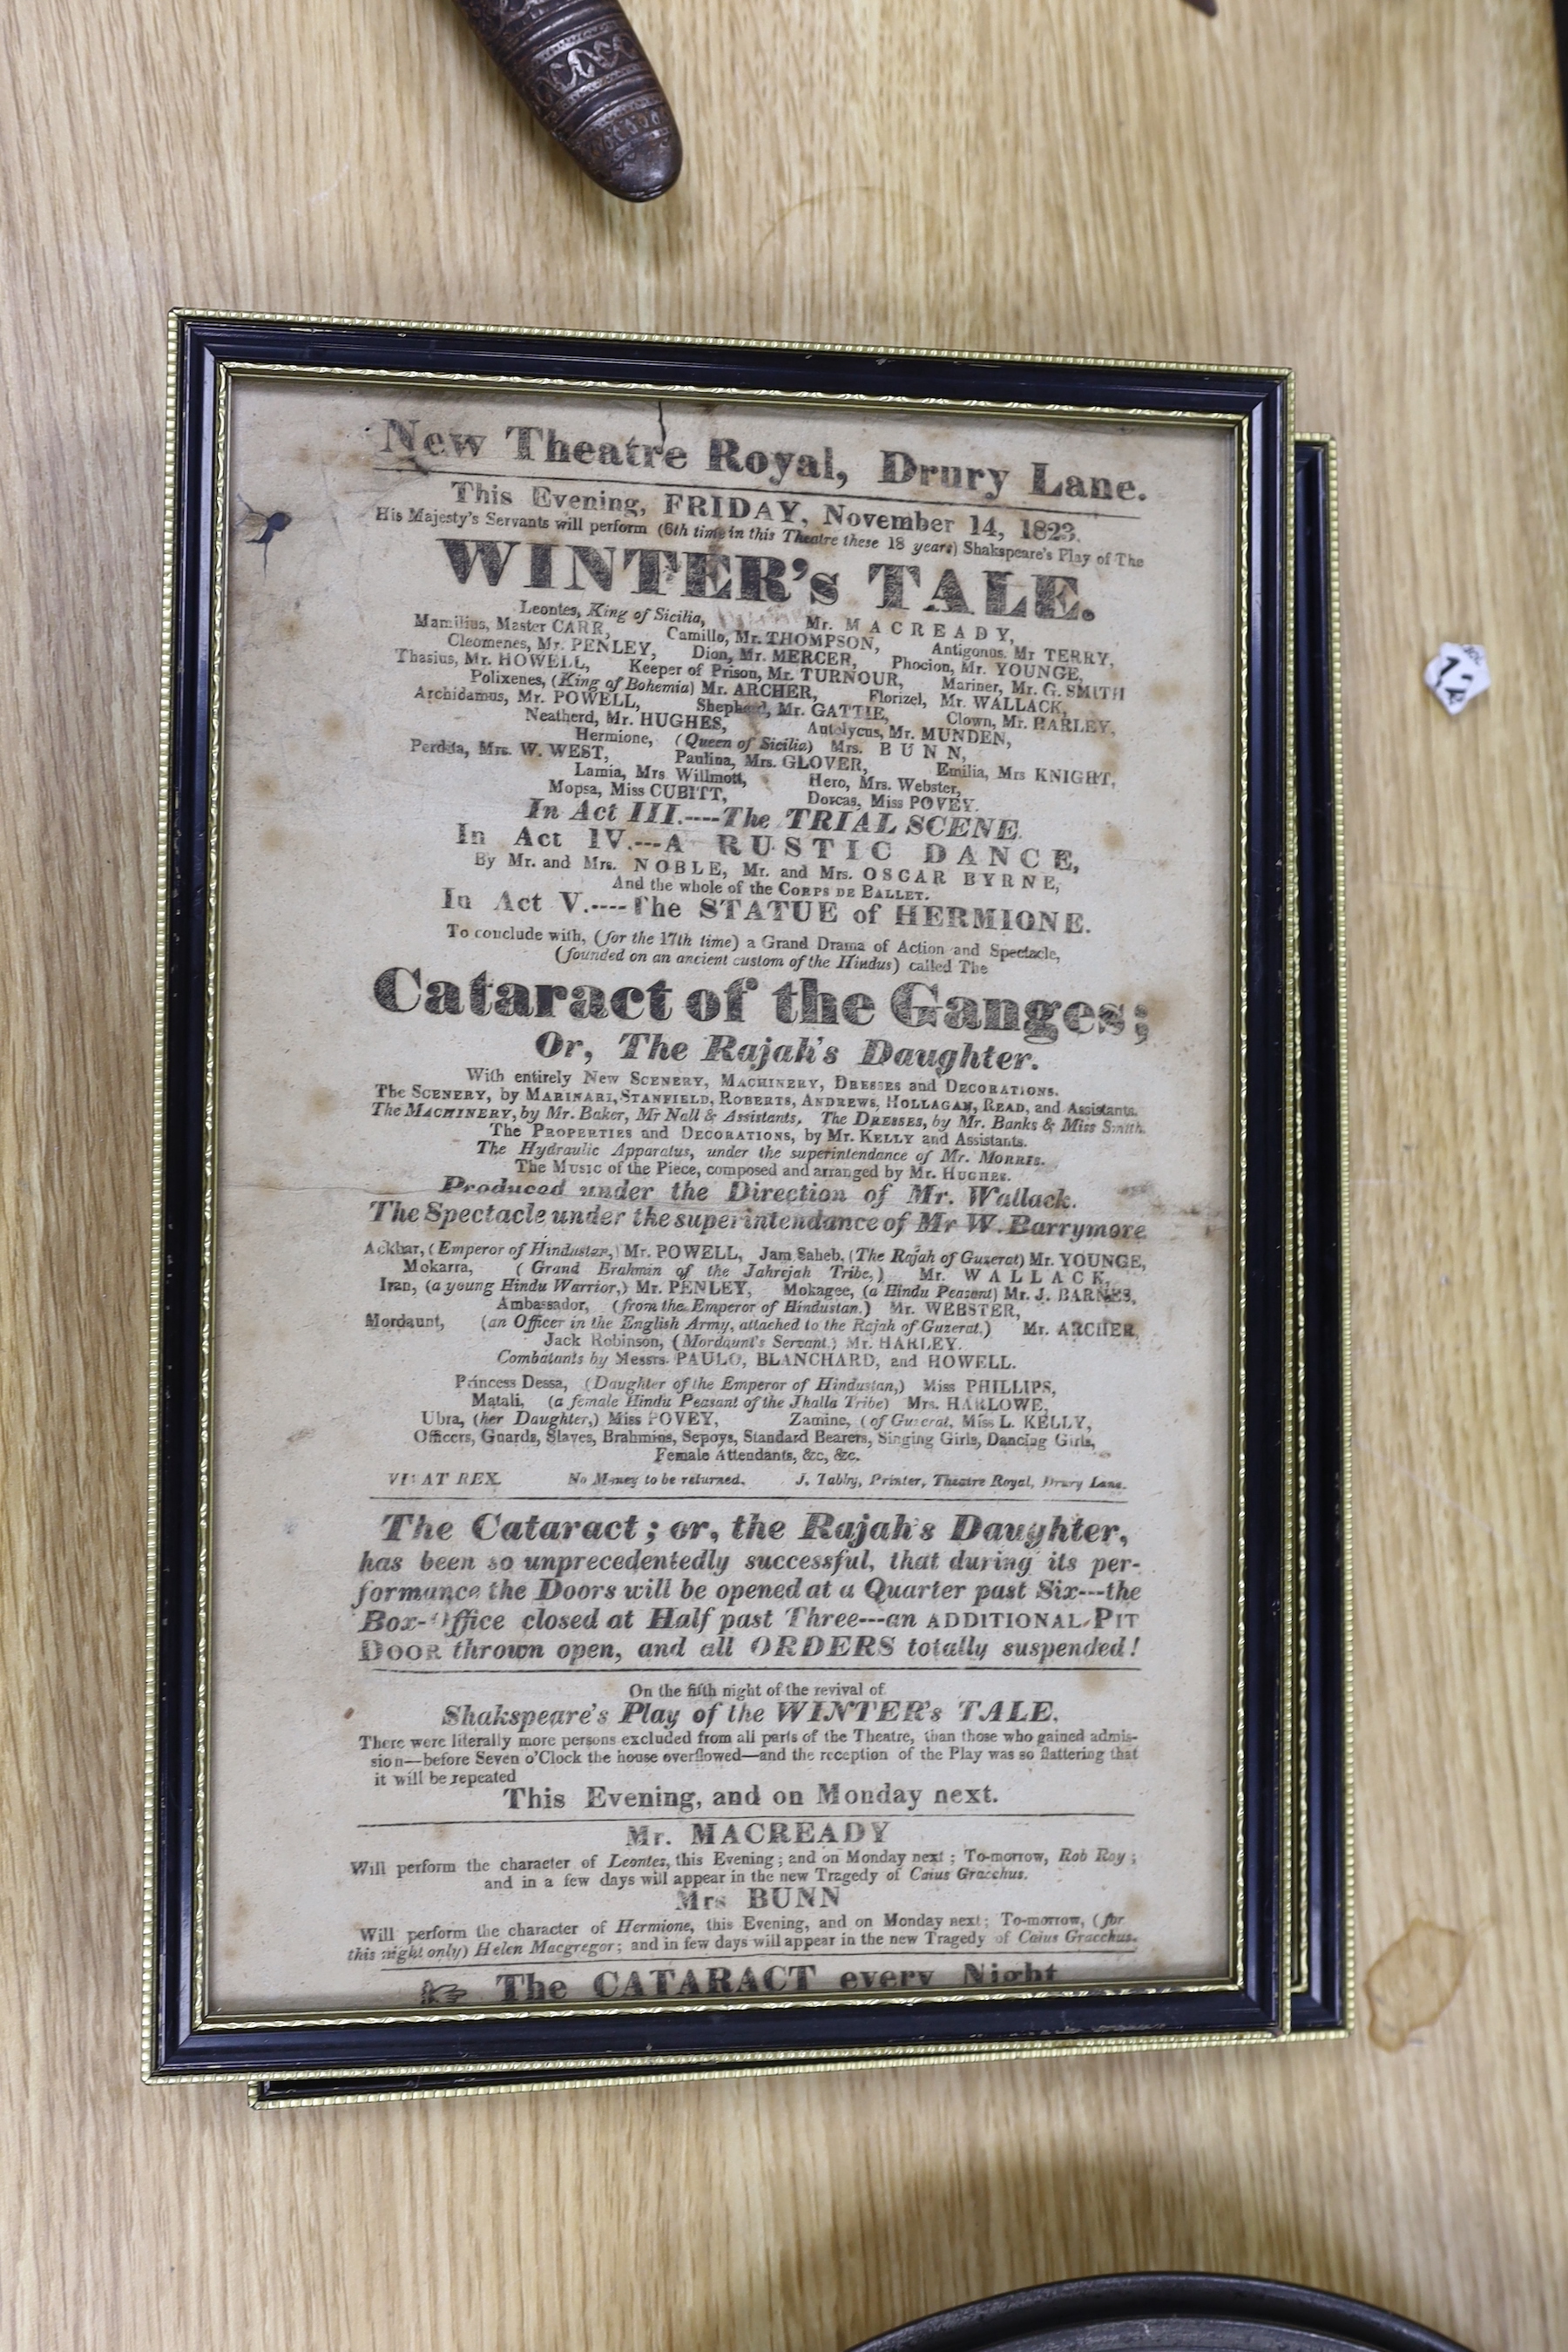 New Theatre Royal, Drury Lane.
This Evening, FRIDAY, November 14, 1823.
His Majesty's Servants will perform (6th time in this Theatre these 18 years) Shakspeare's Play of The
WINTER's TALE.
Leontes, King of Sicilia, Mr. MACREADY,
Mamilius, Master CARR, Camillo, Mr. THOMPSON, Antigonus. Mr TERRY,
Cleomenes, Mr. PENLEY, Dion, Mr. MERCER, Phocion, Mr. YOUNGE,
Thasius, Mr. HOWELL, Keeper of Prison, Mr. TURNOUR, Mariner, Mr. G. SMITH
Polixenes, (King of Bohemia) Mr. ARCHER, Florizel, Mr. WALLACK,
Archidamus, Mr. POWELL, Shepherd, Mr. GATTIE, Clown, Mr. HARLEY,
Neatherd, Mr. HUGHES, Autolycus, Mr. MUNDEN,
Hermione, (Queen of Sicilia) Mrs. BUNN,
Perdita, Mrs. W. WEST, Paulina, Mrs. GLOVER, Emilia, Mrs KNIGHT,
Lamia, Mrs Willmott, Hero, Mrs. Webster,
Mopsa, Miss CUBITT, Dorcas, Miss POVEY.
In Act III.----The TRIAL SCENE.
In Act IV.---A RUSTIC DANCE,
By Mr. and Mrs. NOBLE, Mr. and Mrs. OSCAR BYRNE,
And the whole of the CORPS DE BALLET.
In Act V.----The STATUE of HERMIONE.
To conclude with, (for the 17th time) a Grand Drama of Action and Spectacle,
(founded on an ancient custom of the Hindus) called The
Cataract of the Ganges;
Or, The Rajah's Daughter.
With entirely New SCENERY, MACHINERY, DRESSES and DECORATIONS.
The SCENERY, by MARINARI, STANFIELD, ROBERTS, ANDREWS, HOLLAGAN, READ, and Assistants.
The MACHINERY, by Mr. Baker, Mr Nall & Assistants, The DRESSES, by Mr. Banks & Miss Smith.
The PROPERTIES and DECORATIONS, by Mr. KELLY and Assistants.
The Hydraulic Apparatus, under the superintendance of Mr. MORRIS.
The MUSIC of the Piece, composed and arranged by Mr. HUGHES.
Produced under the Direction of Mr. Wallack.
The Spectacle under the superintendance of Mr W. Barrymore
Ackbar, (Emperor of Hindustan,) Mr. POWELL, Jam Saheb, (The Rajah of Guzerat) Mr. YOUNGE,
Mokarra, (Grand Brahmin of the Jahrejah Tribe,) Mr. WALLACK,
Iran, (a young Hindu Warrior,) Mr. PENLEY, Mokagee, (a Hindu Peasant) Mr. J. BARNES,
Ambassador, (from the Emperor of Hindustan.) Mr. WEBSTER,
Mordaunt, (an Officer in the English Army, attached to the Rajah of Guzerat,) Mr. ARCHER,
Jack Robinson, (Mordaunt's Servant,) Mr. HARLEY.
Combatants by Messrs. PAULO, BLANCHARD, and HOWELL.
Princess Dessa, (Daughter of the Emperor of Hindustan,) Miss PHILLIPS,
Matali, (a female Hindu Peasant of the Jhalla Tribe) Mrs. HARLOWE,
Ubra, (her Daughter,) Miss POVEY, Zamine, (of Guzerat, Miss L. KELLY,
Officers, Guards, Slaves, Brahmins, Sepoys, Standard Bearers, Singing Girls, Dancing Girls,
Female Attendants, &c, &c.
VIVAT REX. No Money to be returned. J. Tabby, Printer, Theatre Royal, Drury Lane.
The Cataract; or, the Rajah's Daughter,
has been so unprecedentedly successful, that during its per-
formance the Doors will be opened at a Quarter past Six---the
Box-Office closed at Half past Three---an ADDITIONAL PIT
DOOR thrown open, and all ORDERS totally suspended!
On the fifth night of the revival of
Shakspeare's Play of the WINTER's TALE,
There were literally more persons excluded from all parts of the Theatre, than those who gained admis-
sion—before Seven o'Clock the house overflowed—and the reception of the Play was so flattering that
it will be repeated
This Evening, and on Monday next.
Mr. MACREADY
Will perform the character of Leontes, this Evening; and on Monday next; To-morrow, Rob Roy;
and in a few days will appear in the new Tragedy of Caius Gracchus.
Mrs BUNN
Will perform the character of Hermione, this Evening, and on Monday next; To-morrow, (for
this night only) Helen Macgregor; and in few days will appear in the new Tragedy of Caius Gracchus.
The CATARACT every Night